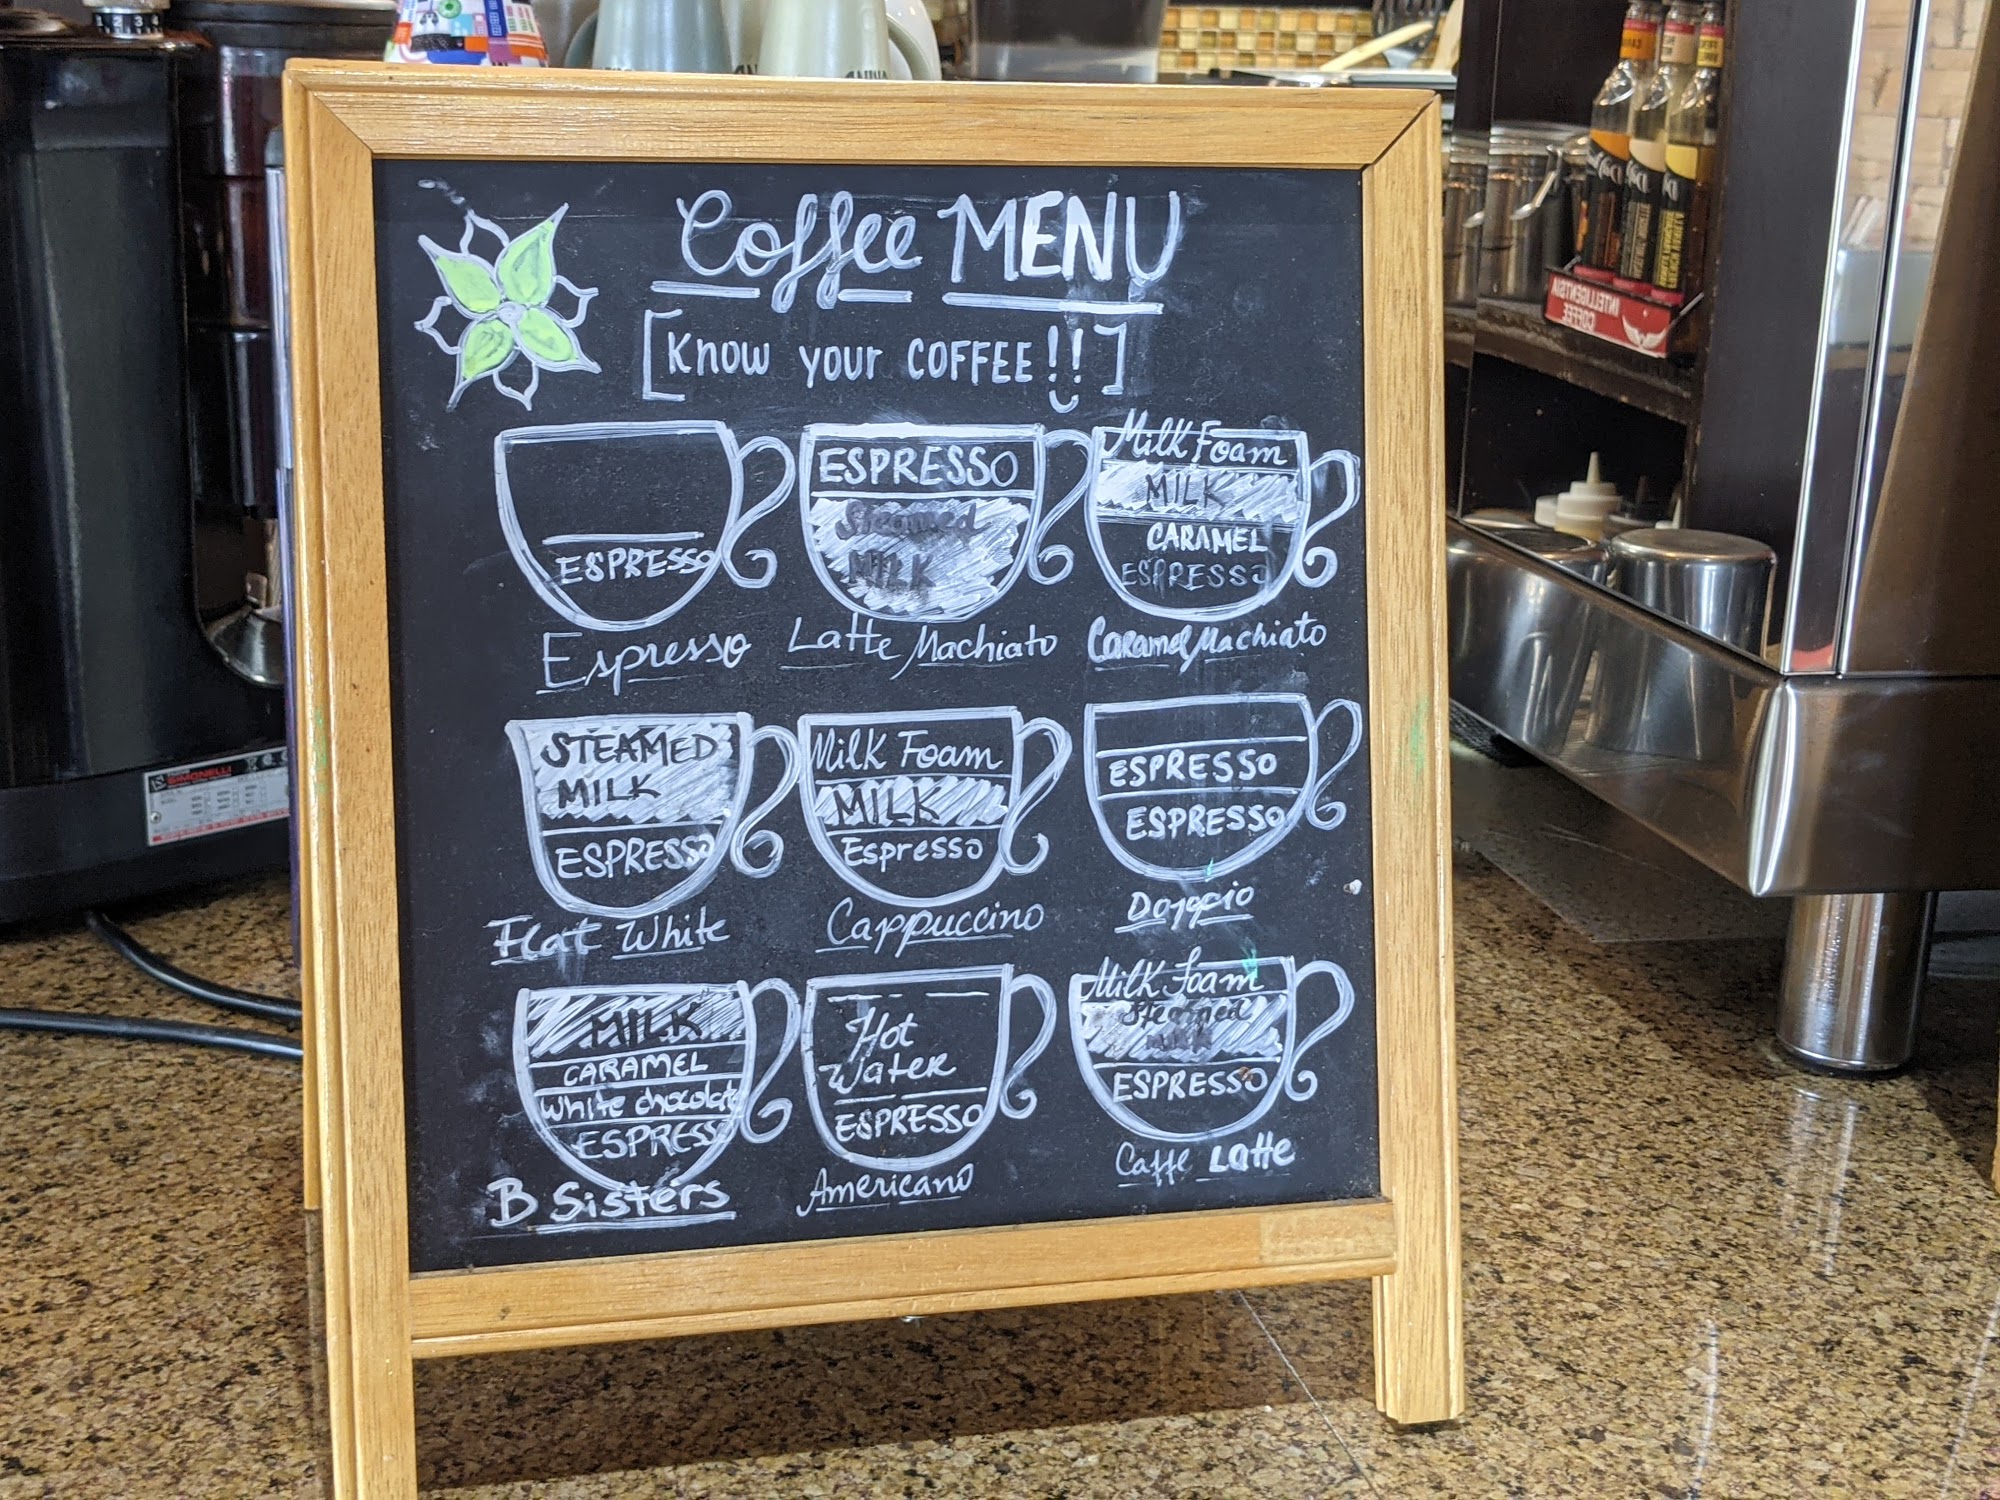 Coffee MENU
[Know your COFFEE!!]
ESPRESSO
Espresso
ESPRESSO
Steamed
MILK
Latte Machiato
Milk Foam
MILK
CARAMEL
ESPRESSO
Caramel Machiato
STEAMED
MILK
ESPRESSO
Flat White
Milk Foam
MILK
Espresso
Cappuccino
ESPRESSO
ESPRESSO
Doppio
MILK
CARAMEL
White chocolat
ESPRESSO
B Sisters
Hot
Water
ESPRESSO
Americano
Milk Foam
Steamed
MILK
ESPRESSO
Caffe Latte
SIMONELLI
INTELLIGENTSIA
COFFEE